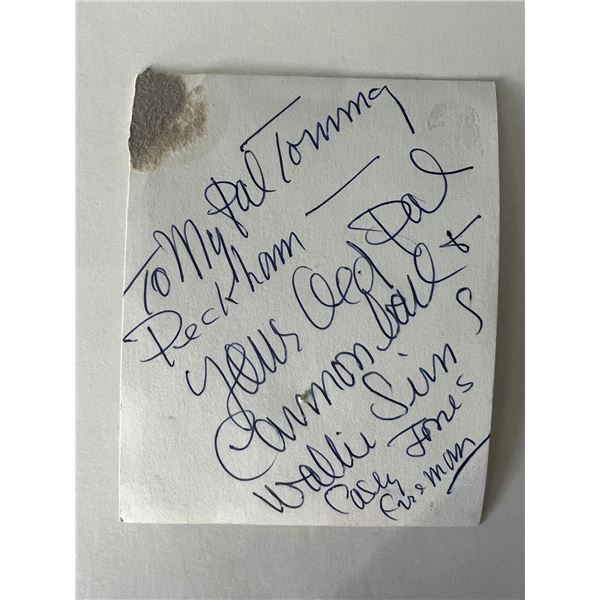 To My Pal Tommy
Peckham —
Your Old Pal
Cannon-ball &
Wallie Sims
Casey Jones
Fireman